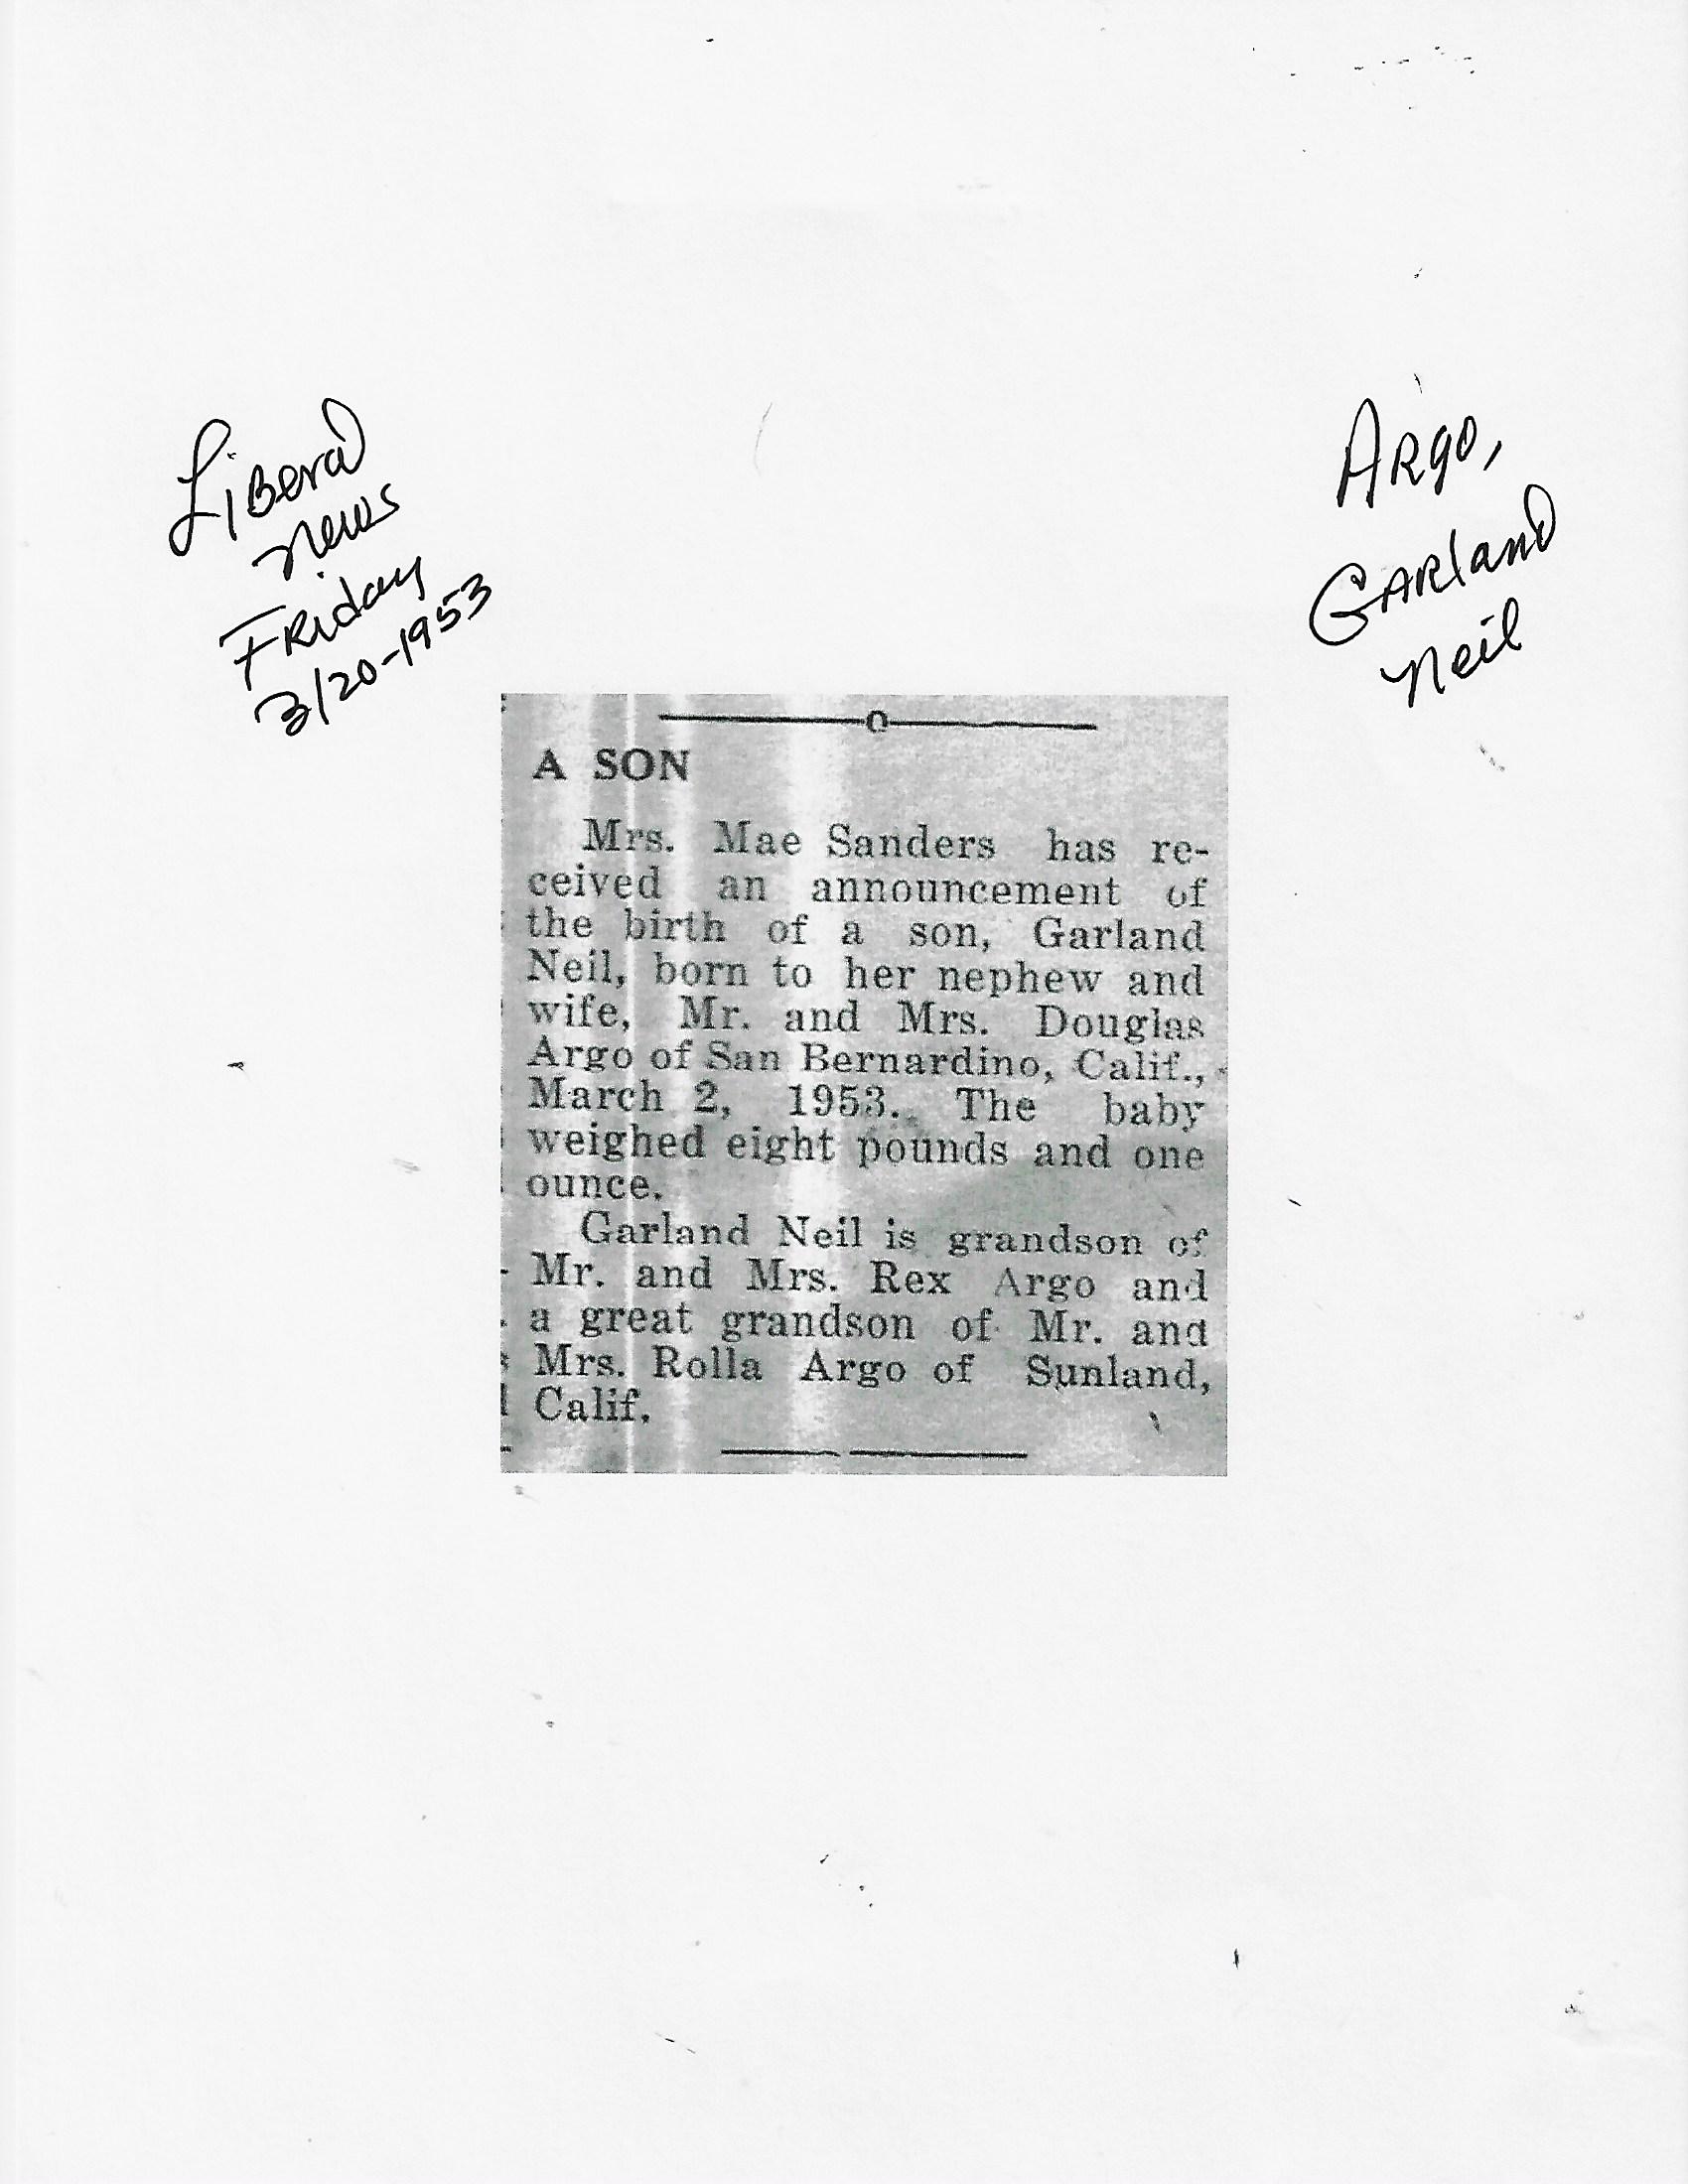 Liberal
News
Friday
3/20-1953
Argo,
Garland
Neil
A SON
Mrs. Mae Sanders has re-
ceived an announcement of
the birth of a son, Garland
Neil, born to her nephew and
wife, Mr. and Mrs. Douglas
Argo of San Bernardino, Calif.,
March 2, 1953. The baby
weighed eight pounds and one
ounce.
Garland Neil is grandson of
Mr. and Mrs. Rex Argo and
a great grandson of Mr. and
Mrs. Rolla Argo of Sunland,
Calif.